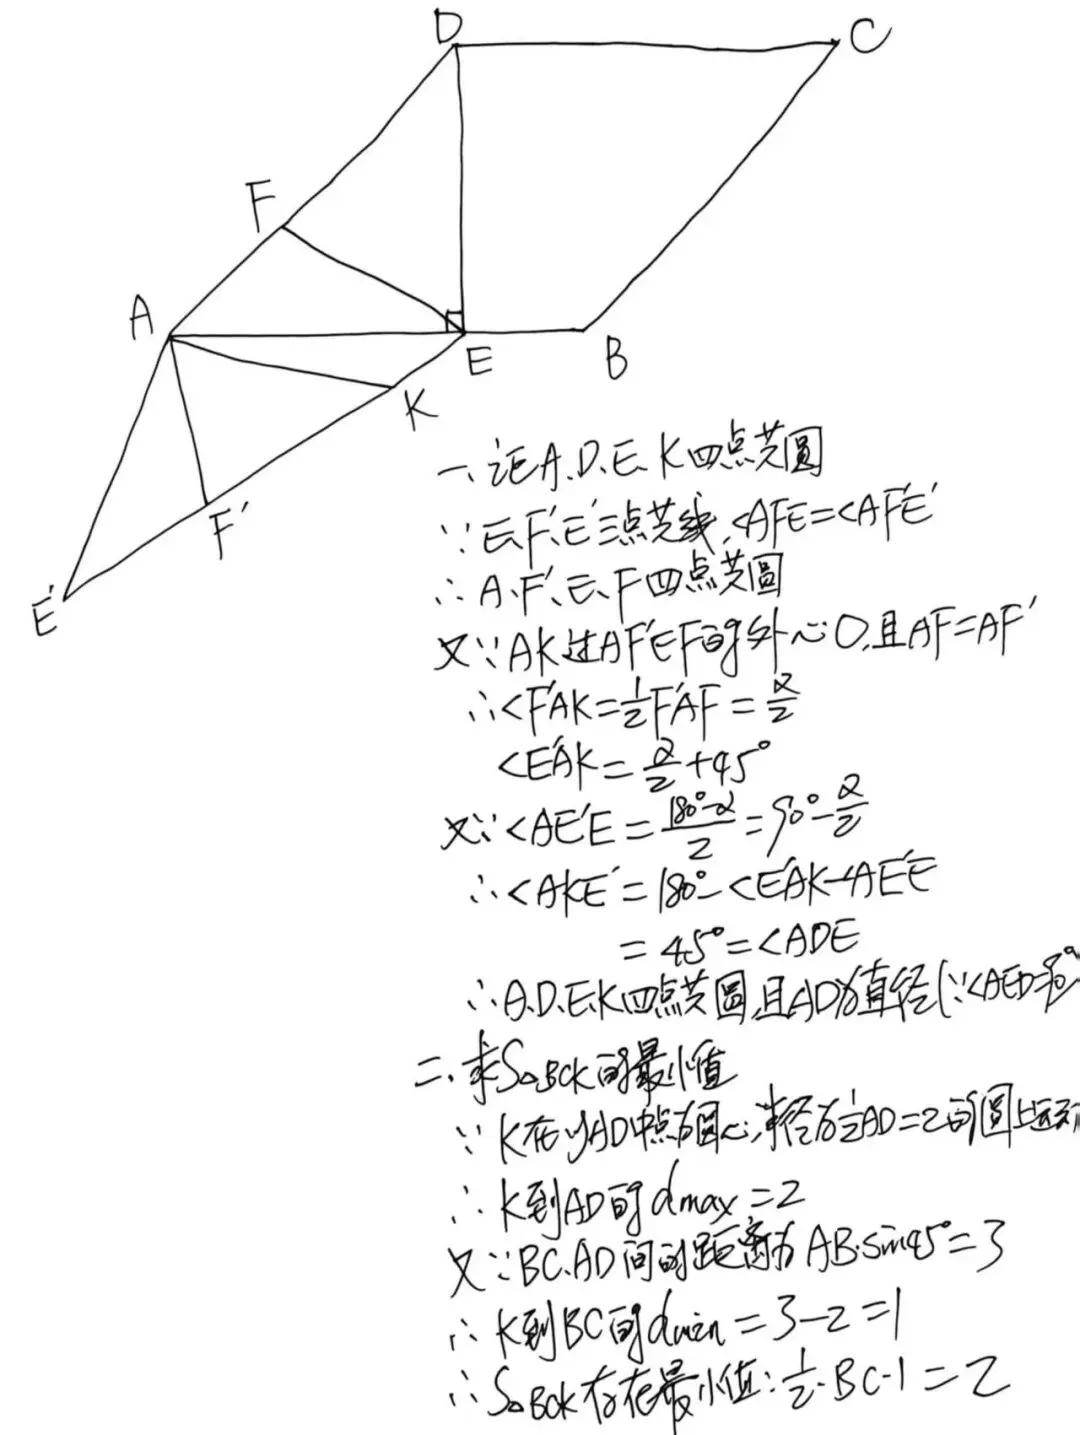 D
C
F
A
E
B
K
F'
E'
一、证A.D.E.K四点共圆
∵E、F'、E'三点共线,<AFE=<AF'E'
∴A、F'、E、F四点共圆
又∵AK过AF'EF的外心O,且AF=AF'
∴<F'AK=½F'AF=α/2
<E'AK=α/2+45°
又∵<AE'E=(180°-α)/2=90°-α/2
∴<AKE'=180°-<E'AK-<AE'E
=45°=<ADE
∴A.D.E.K四点共圆,且AD为直径(∵<AED=90°
二、求S△BCK的最小值
∵K在以AD中点为圆心,半径为½AD=2的圆上运动
∴K到AD的dmax=2
又∵BC、AD间的距离为AB·sin45°=3
∴K到BC的dmin=3-2=1
∴S△BCK存在最小值:½·BC·1=2